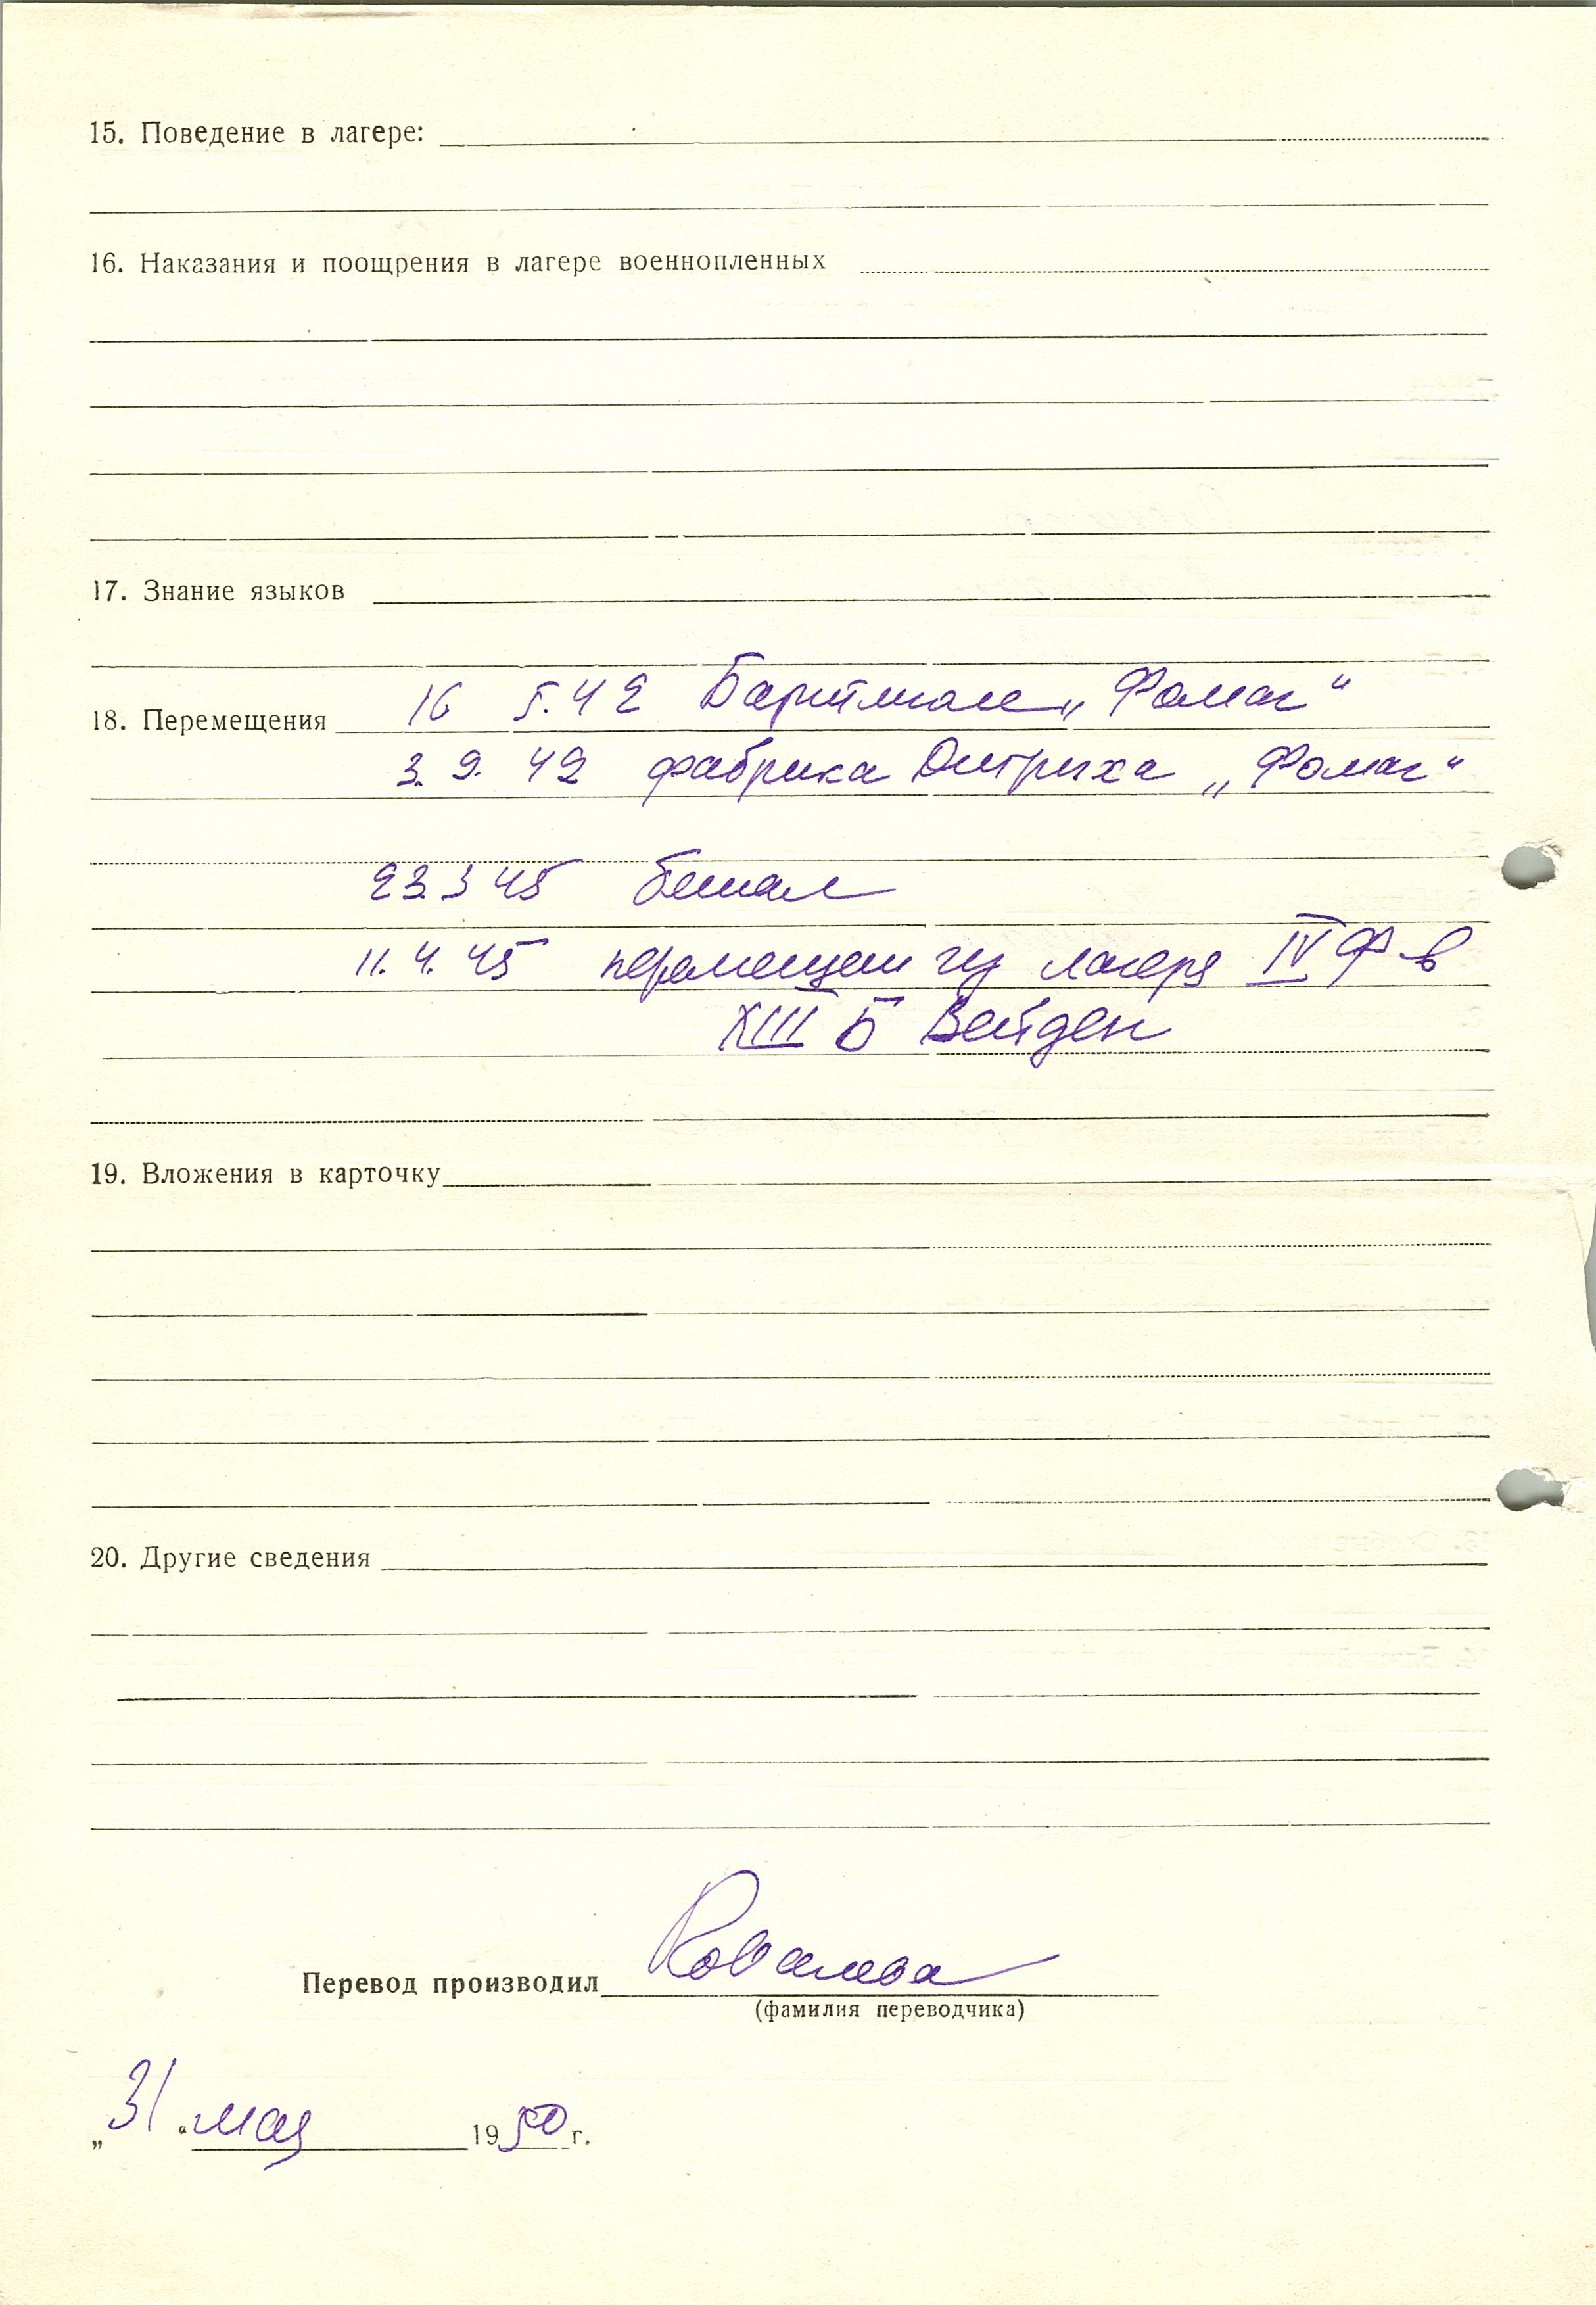 15. Поведение в лагере:
16. Наказания и поощрения в лагере военнопленных
17. Знание языков
18. Перемещения 16 5.42 „Фомаг“
3. 9. 42 фабрика Дитриха „Фомаг“
23.3 45 бежал
11. 4. 45 перемещен из лагеря IV Ф в
XIII Б Вейден
19. Вложения в карточку
20. Другие сведения
Перевод производил Ковалева
(фамилия переводчика)
„31“ мая 1950 г.